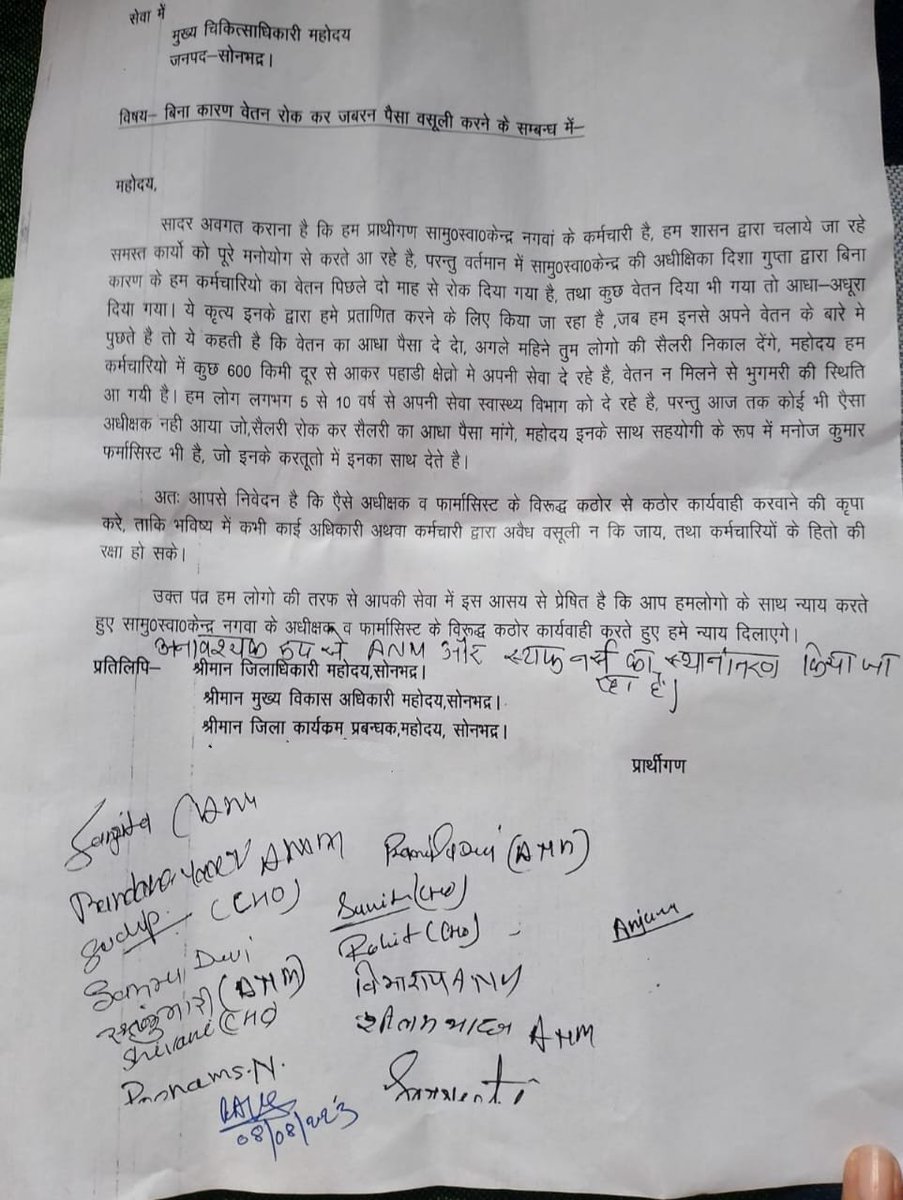 सेवा में
मुख्य चिकित्साधिकारी महोदय
जनपद–सोनभद्र।
विषय– बिना कारण वेतन रोक कर जबरन पैसा वसूली करने के सम्बन्ध में–
महोदय,
सादर अवगत कराना है कि हम प्राथीगण सामु0स्वा0केन्द्र नगवां के कर्मचारी है, हम शासन द्वारा चलाये जा रहे
समस्त कार्यो को पूरे मनोयोग से करते आ रहे है, परन्तु वर्तमान में सामु0स्वा0केन्द्र की अधीक्षिका दिशा गुप्ता द्वारा बिना
कारण के हम कर्मचारियो का वेतन पिछले दो माह से रोक दिया गया है, तथा कुछ वेतन दिया भी गया तो आधा–अधूरा
दिया गया। ये कृत्य इनके द्वारा हमे प्रताणित करने के लिए किया जा रहा है ,जब हम इनसे अपने वेतन के बारे मे
पुछते है तो ये कहती है कि वेतन का आधा पैसा दे देा, अगले महिने तुम लोगो की सैलरी निकाल देंगे, महोदय हम
कर्मचारियो में कुछ 600 किमी दूर से आकर पहाडी क्षेत्रो मे अपनी सेवा दे रहे है, वेतन न मिलने से भुगमरी की स्थिति
आ गयी है। हम लोग लगभग 5 से 10 वर्ष से अपनी सेवा स्वास्थ्य विभाग को दे रहे है, परन्तु आज तक कोई भी ऐसा
अधीक्षक नही आया जो,सैलरी रोक कर सैलरी का आधा पैसा मांगे, महोदय इनके साथ सहयोगी के रूप में मनोज कुमार
फर्मासिस्ट भी है, जो इनके करतूतो में इनका साथ देते है।
अतः आपसे निवेदन है कि ऐसे अधीक्षक व फार्मासिस्ट के विरूद्ध कठोर से कठोर कार्यवाही करवाने की कृपा
करे, ताकि भविष्य में कभी काई अधिकारी अथवा कर्मचारी द्वारा अवैध वसूली न कि जाय, तथा कर्मचारियों के हितो की
रक्षा हो सके।
उक्त पत्र हम लोगो की तरफ से आपकी सेवा में इस आसय से प्रेषित है कि आप हमलोगो के साथ न्याय करते
हुए सामु0स्वा0केन्द्र नगवा के अधीक्षक व फार्मासिस्ट के विरूद्ध कठोर कार्यवाही करते हुए हमे न्याय दिलाएगे।
अनावश्यक रूप से ANM और स्टाफ नर्स का स्थानांतरण किया जा
रहा है।
प्रतिलिपि– श्रीमान जिलाधिकारी महोदय,सोनभद्र।
श्रीमान मुख्य विकास अधिकारी महोदय,सोनभद्र।
श्रीमान जिला कार्यकम प्रबन्धक,महोदय, सोनभद्र।
प्रार्थीगण
Sangita (ANM
Bandana Yadav ANM
(ANM)
(CHO)
Sunita (CHO)
Rohit (CHO)
Anjana
Devi
(ANM)
ANM
Shivani (CHO)
ANM
Poonam S.N.
08/08/2023